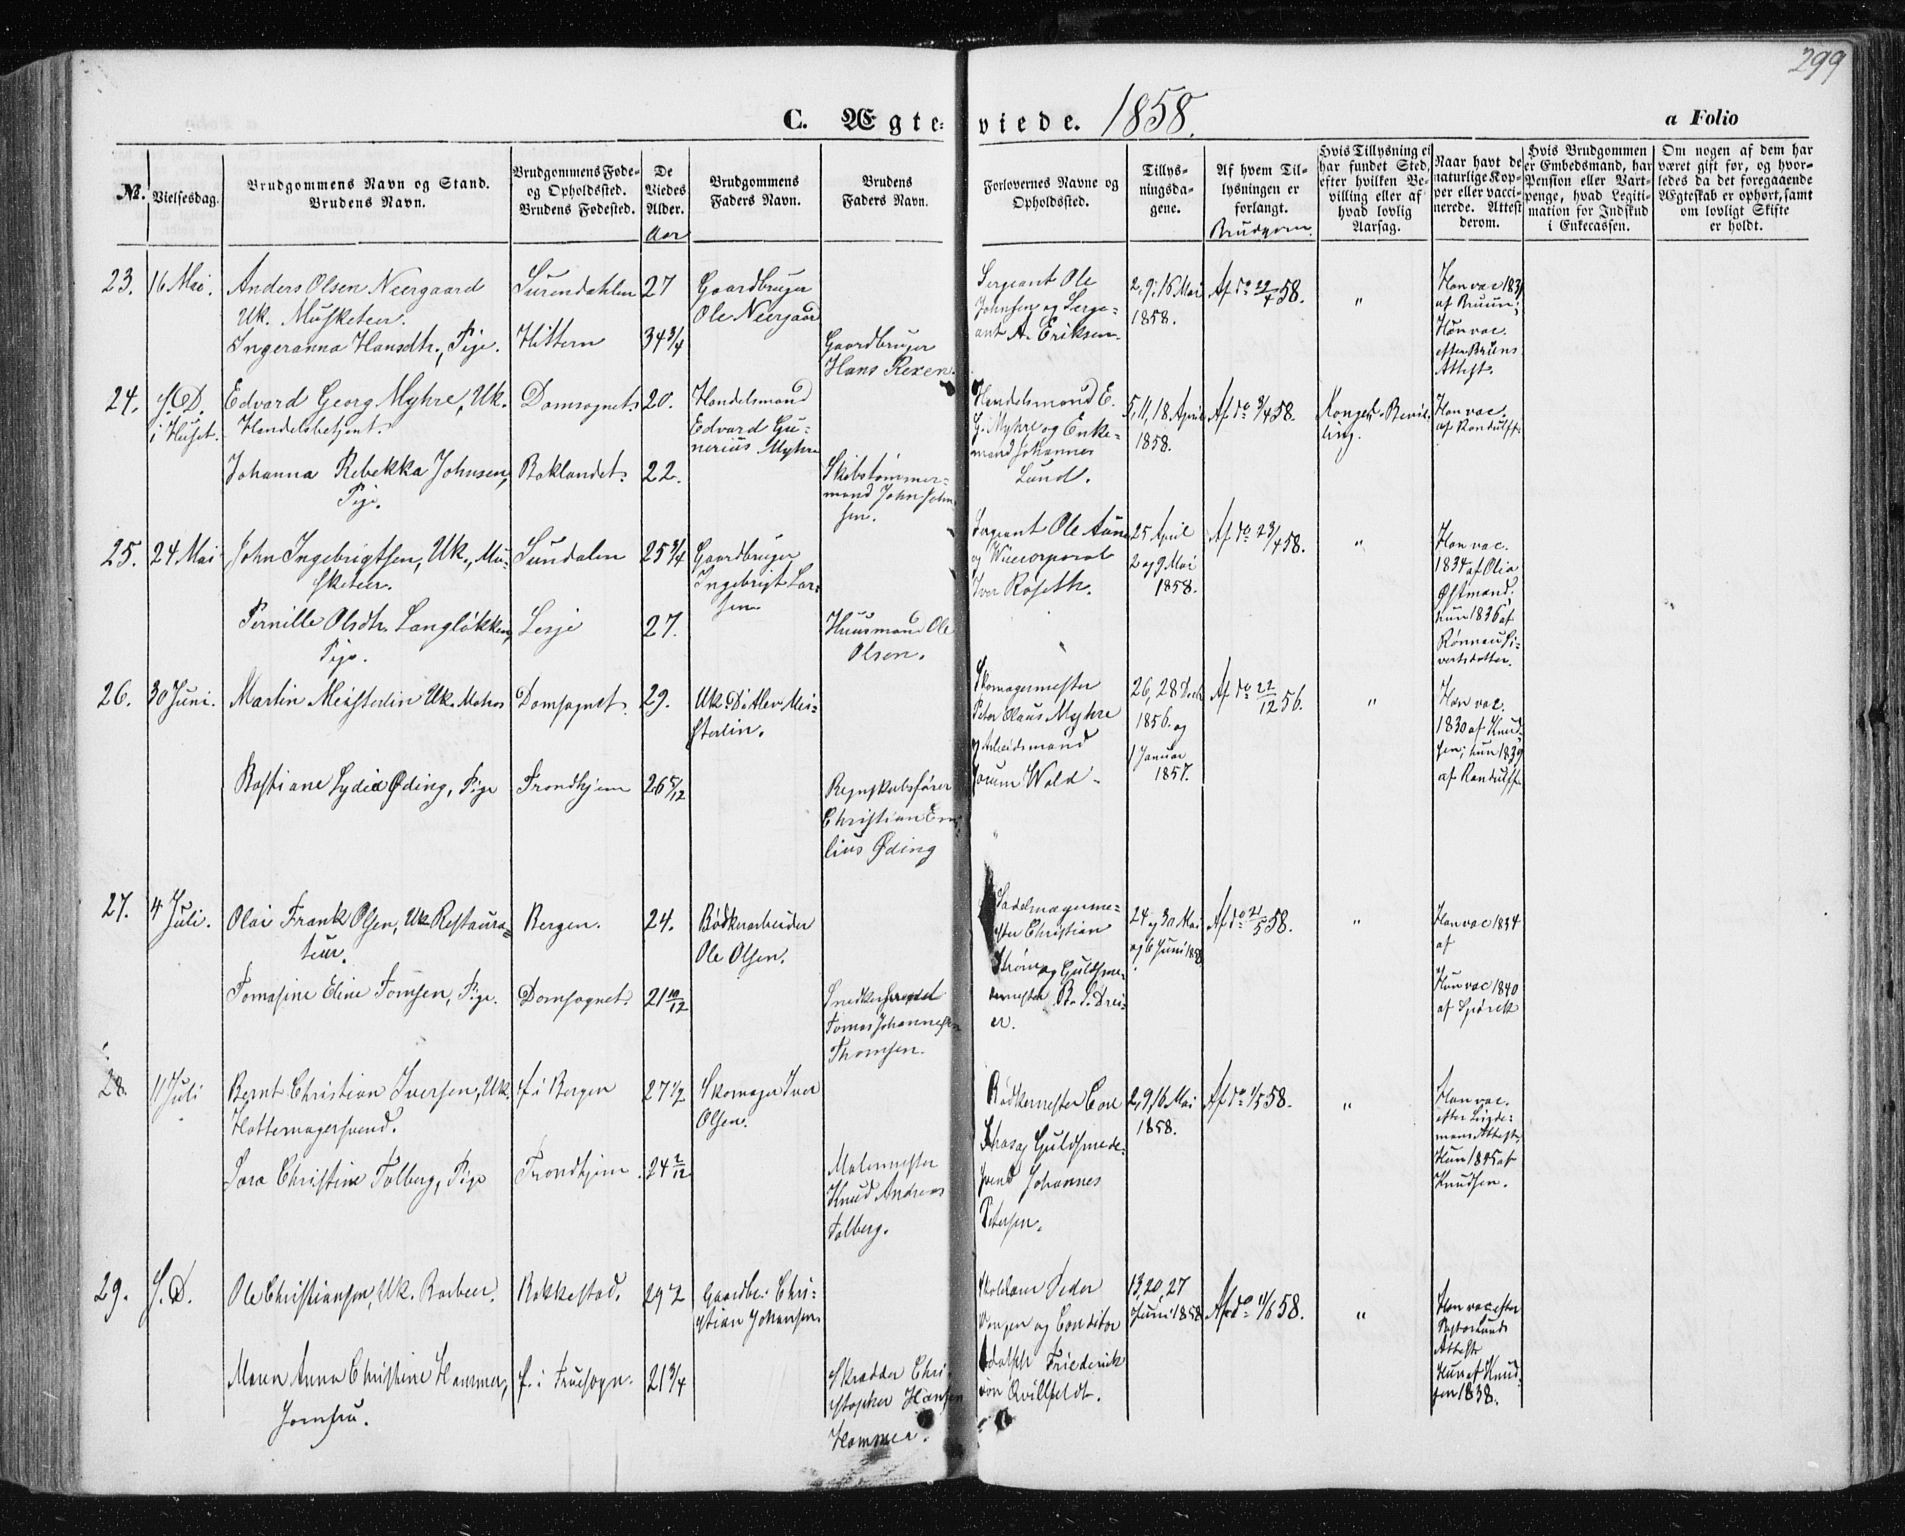 299
C. Ægteviede. 1858.
a Folio
No.
Vielsesdag.
Brudgommens Navn og Stand.
Brudens Navn.
Brudgommens Føde-
og Opholdssted.
Brudens Fødested.
De
Viedes
Alder.
Aar
Brudgommens
Faders Navn.
Brudens
Faders Navn.
Forlovernes Navne og
Opholdssted.
Tillys-
ningsda-
gene.
Af hvem Til-
lysningen er
forlangt.
Brudgom.
Hvis Tillysning ei
har fundet Sted,
efter hvilken Be-
villing eller af
hvad lovlig
Aarsag.
Naar havt de
naturlige Kop-
per eller vacci-
nerede. Attest
derom.
Hvis Brudgommen
er Embedsmand, har
Pension eller Vart-
penge, hvad Legiti-
mation for Indskud
i Enkecassen.
Om nogen af dem har
været gift før, og hvor-
ledes da det foregaaende
Ægteskab er ophørt, samt
om lovligt Skifte
er holdt.
23. 16 Mai.
Anders Olsen Neergaard
Uk. Musketeer.
Ingeranna Hansdtr., Pige.
Surendahlen
Hittern
27
34 3/4
Gaardbruger
Ole Neergaard
Gaardbruger
Hans Rexen.
Sergeant Ole
Johnsen og Serge-
ant A. Eriksen.
2, 9, 16 Mai
1858.
Af do 22/4 58.
"
Han vac. 1831
af Bruun;
Hun vac.
efter Bruns
Attest.
24. S. D.
i Huset.
Edvard Georg Myhre, Uk.
Handelsbetjent.
Johanna Rebekka Johnsen,
Pige.
Domsognet
Baklandet.
20.
22.
Handelsmand
Edvard Gu-
nerius Myhre
Skibstømmer-
mand John John-
sen.
Handelsmand E.
G. Myhre og Enke-
mand Johannes
Lund.
5, 11, 18 April
1858.
Af do 3/4 58.
Kongel. Bevil-
ling.
Han vac.
af Randulff.
25. 24 Mai
John Ingebrigtsen, Uk., Mu-
sketeer.
Pernille Olsdtr. Langløkken,
Pige.
Sundalen
Lesje
25 3/4
27.
Gaardbruger
Ingebrigt Lar-
sen.
Huusmand Ole
Olsen.
Sergeant Ole Aune
og Vicecorporal
Iver Roseth.
25 April
2 og 9 Mai
1858.
Af do 23/4 58.
"
Han vac.
1834 af Olia
Østmand,
hun 1836 af
Rønnau Si-
vertsdatter.
26. 30 Juni.
Martin Meisterlin Uk. Matros
Bastiane Lydia Øding, Pige
Domsognet.
Trondhjem
29.
26 5/12
Uk. Ditlev Mei-
sterlin.
Regnskabsfører
Christian Emi-
lius Øding
Skomagermester
Peter Olaus Myhre
og Arbeidsmand
Jorum Wold.
26, 28 Decb
1856 og
1 Januar
1857.
Af do 22/12 56.
"
Han vac.
1830 af Knud-
sen; hun 1839
af Randulff.
27. 4 Juli.
Olai Frank Olsen, Uk. Restaura-
teur.
Tomasine Eline Tomsen, Pige.
Bergen.
Domsognet.
24.
21 10/12
Bødkerarbeider
Ole Olsen.
Snedkersvend
Tomas Johannesen
Thomsen.
Sadelmagerme-
ster Christian
Strøm og Guldsme-
demester B. S. Drei-
er.
24 og 30 Mai
og 6 Juni 1858
Af do 21/5 58.
"
Han vac 1834
af
Hun vac 1840
af Spørck
28. 11 Juli
Bernt Christian Iversen, Uk.
Hattemagersvend.
Sara Christine Tolberg, Pige
f. i Bergen
Trondhjem.
27 1/2
24 2/12
Skomager Iver
Olsen.
Malermester
Knud Andreas
Tolberg.
Bødkermester Carl
og Guldsmede-
svend Johannes
Petersen.
2, 9, 16 Mai
1858.
Af do 1/5 58.
"
Han vac.
efter Linde-
mans Attest.
Hun 1845 af
Knudsen.
29. S. D.
Ole Christiansen, Uk. Barbeer.
Maren Anna Christine Hammer,
Jomfru.
Rakkestad.
f. i Fruesogn.
29 1/2
21 3/4
Gaardbr. Chri-
stian Johansen
Skrædder Chri-
stopher Hansen
Hammer.
Peder
og Conditor
Adolph Friederich
von Qvillfeldt.
13, 20, 27
Juni 1858
Af do 11/6 58.
"
Han vac efter
Attest
Hun af Knud-
sen 1838.